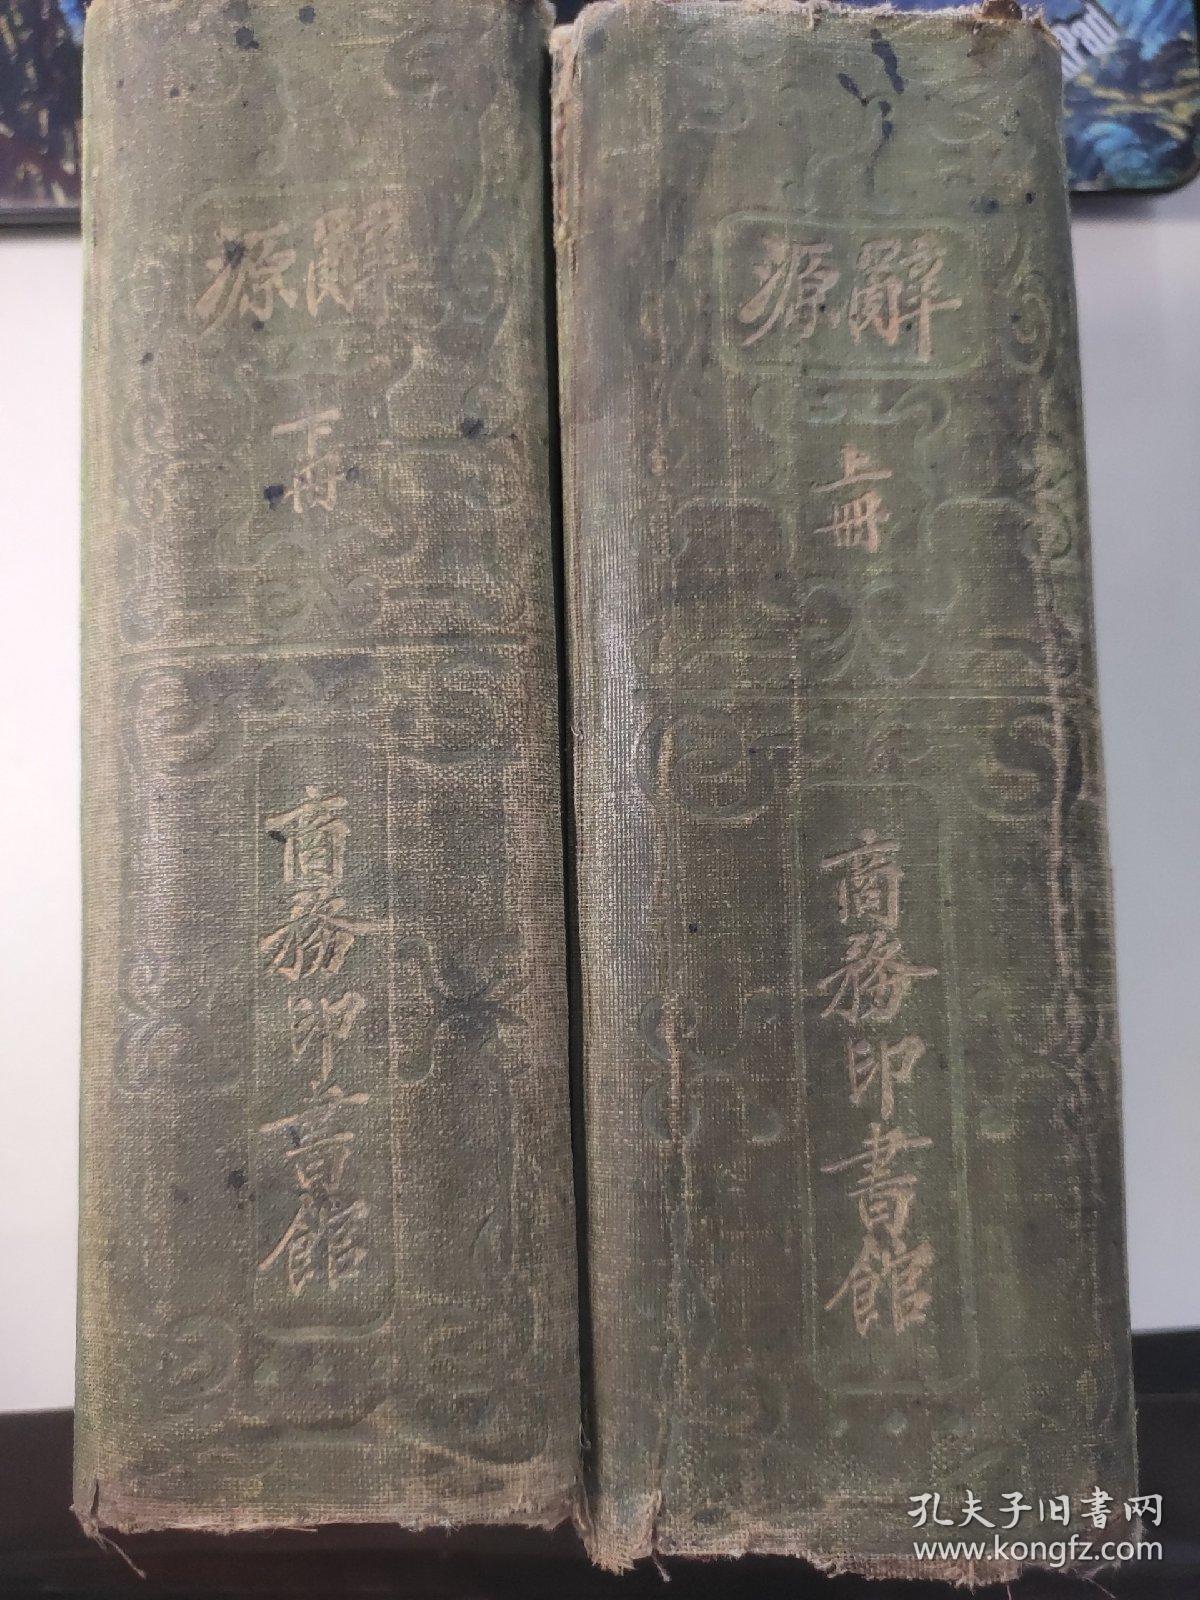 源辭
下册
商務印書館
源辭
上册
商務印書館
Pad
孔夫子旧書网
www.kongfz.com